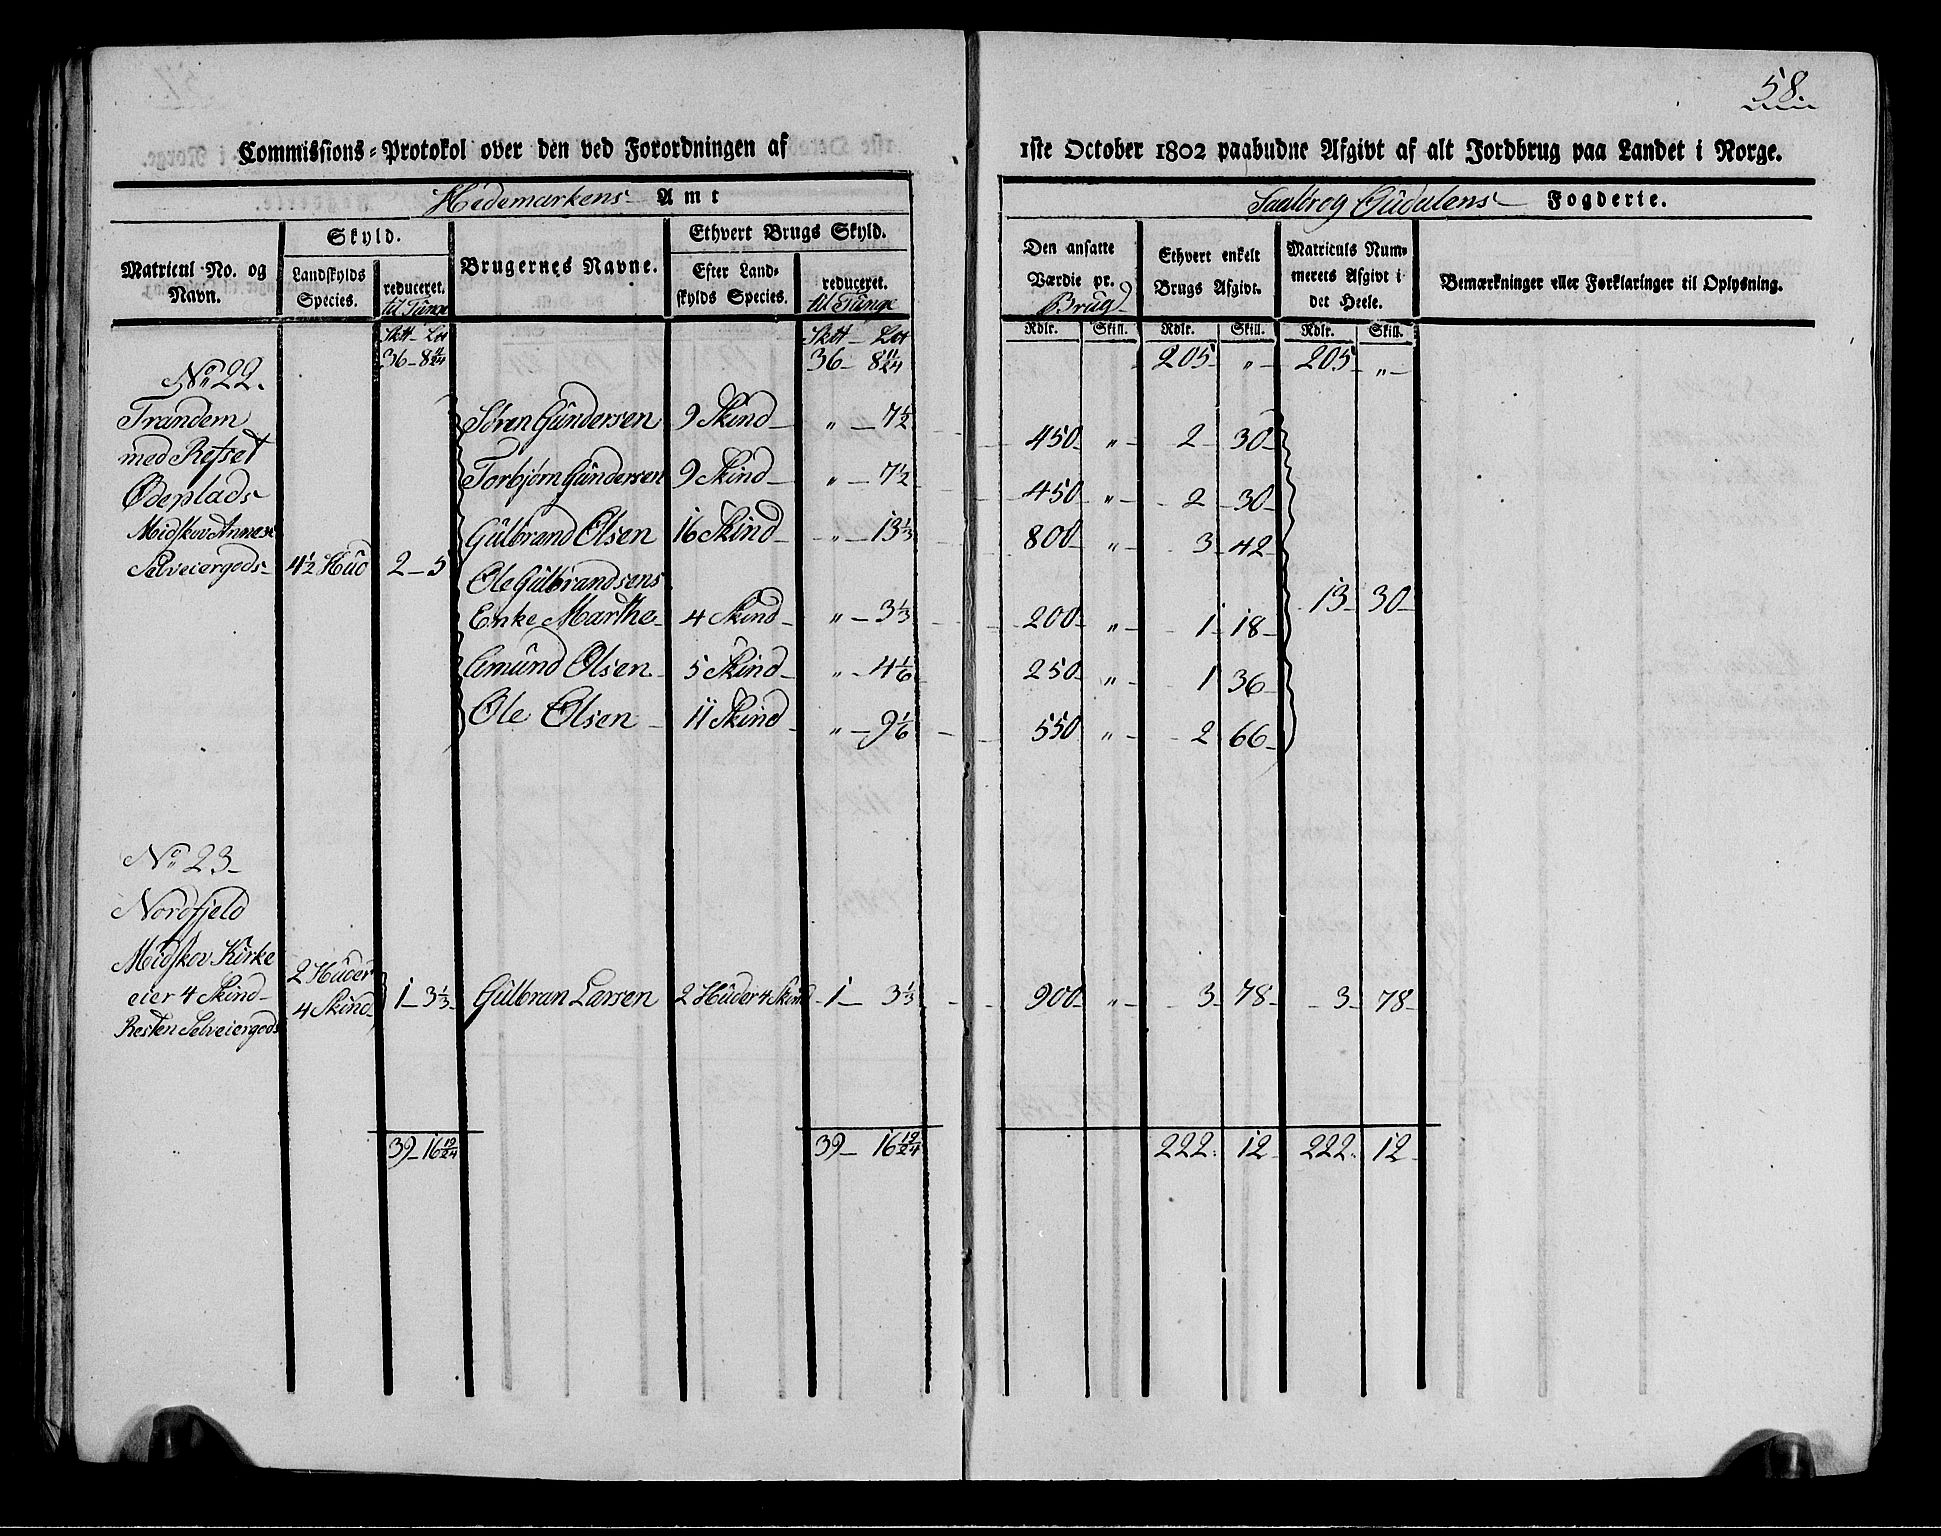 58.
Commissions-Protokol over den ved Forordningen af 1ste October 1802 paabudne Afgivt af alt Jordbrug paa Landet i Norge.
Hedemarkens Amt
Fogderie.
Matricul No. og Navn.
Skyld.
Landskylds Species.
reduceret.
til Tunge
Brugernes Navne.
Ethvert Brugs Skyld.
Efter Landskylds Species.
reduceret.
til Tunge
Den ansatte Værdie pr.
Brug
Ethvert enkelt Brugs Afgivt.
Matriculs Nummerets Afgivt i det Heele.
Bemærkninger eller Forklaringer til Oplysning.
Rdlr. Skill. Rdlr. Skill. Rdlr. Skill.
Sktt - Lot Sktt - Lot
36 - 8 11/24 36 - 8 11/24 205 " 205 "
No 22.
Trandem
med Refset
Ødeplads
Midskov Annex
Selveiergods 4½ Hud 2 - 5 13 - 30
Søren Gundersen 9 Skind " - 7½ 450 " 2 30
Torbjørn Gundersen 9 Skind " - 7½ 450 " 2 30
Gulbrand Olsen 16 Skind " - 13⅓ 800 " 3 42
Ole Gulbrandsens
Enke Marthe 4 Skind " - 3⅓ 200 " 1 18
Amund Olsen 5 Skind " - 4 1/6 250 " 1 36
Ole Olsen 11 Skind " - 9 1/6 550 " 2 66
No 23
Nordfjeld
Midskov Kirke
eier 4 Skind
Resten Selveiergods
2 Huder
4 Skind 1 - 3⅓ Gulbran Larsen 2 Huder 4 Skind 1 - 3⅓ 900 " 3 78 3 78
39 - 16 19/24 39 - 16 19/24 222. 12 222. 12